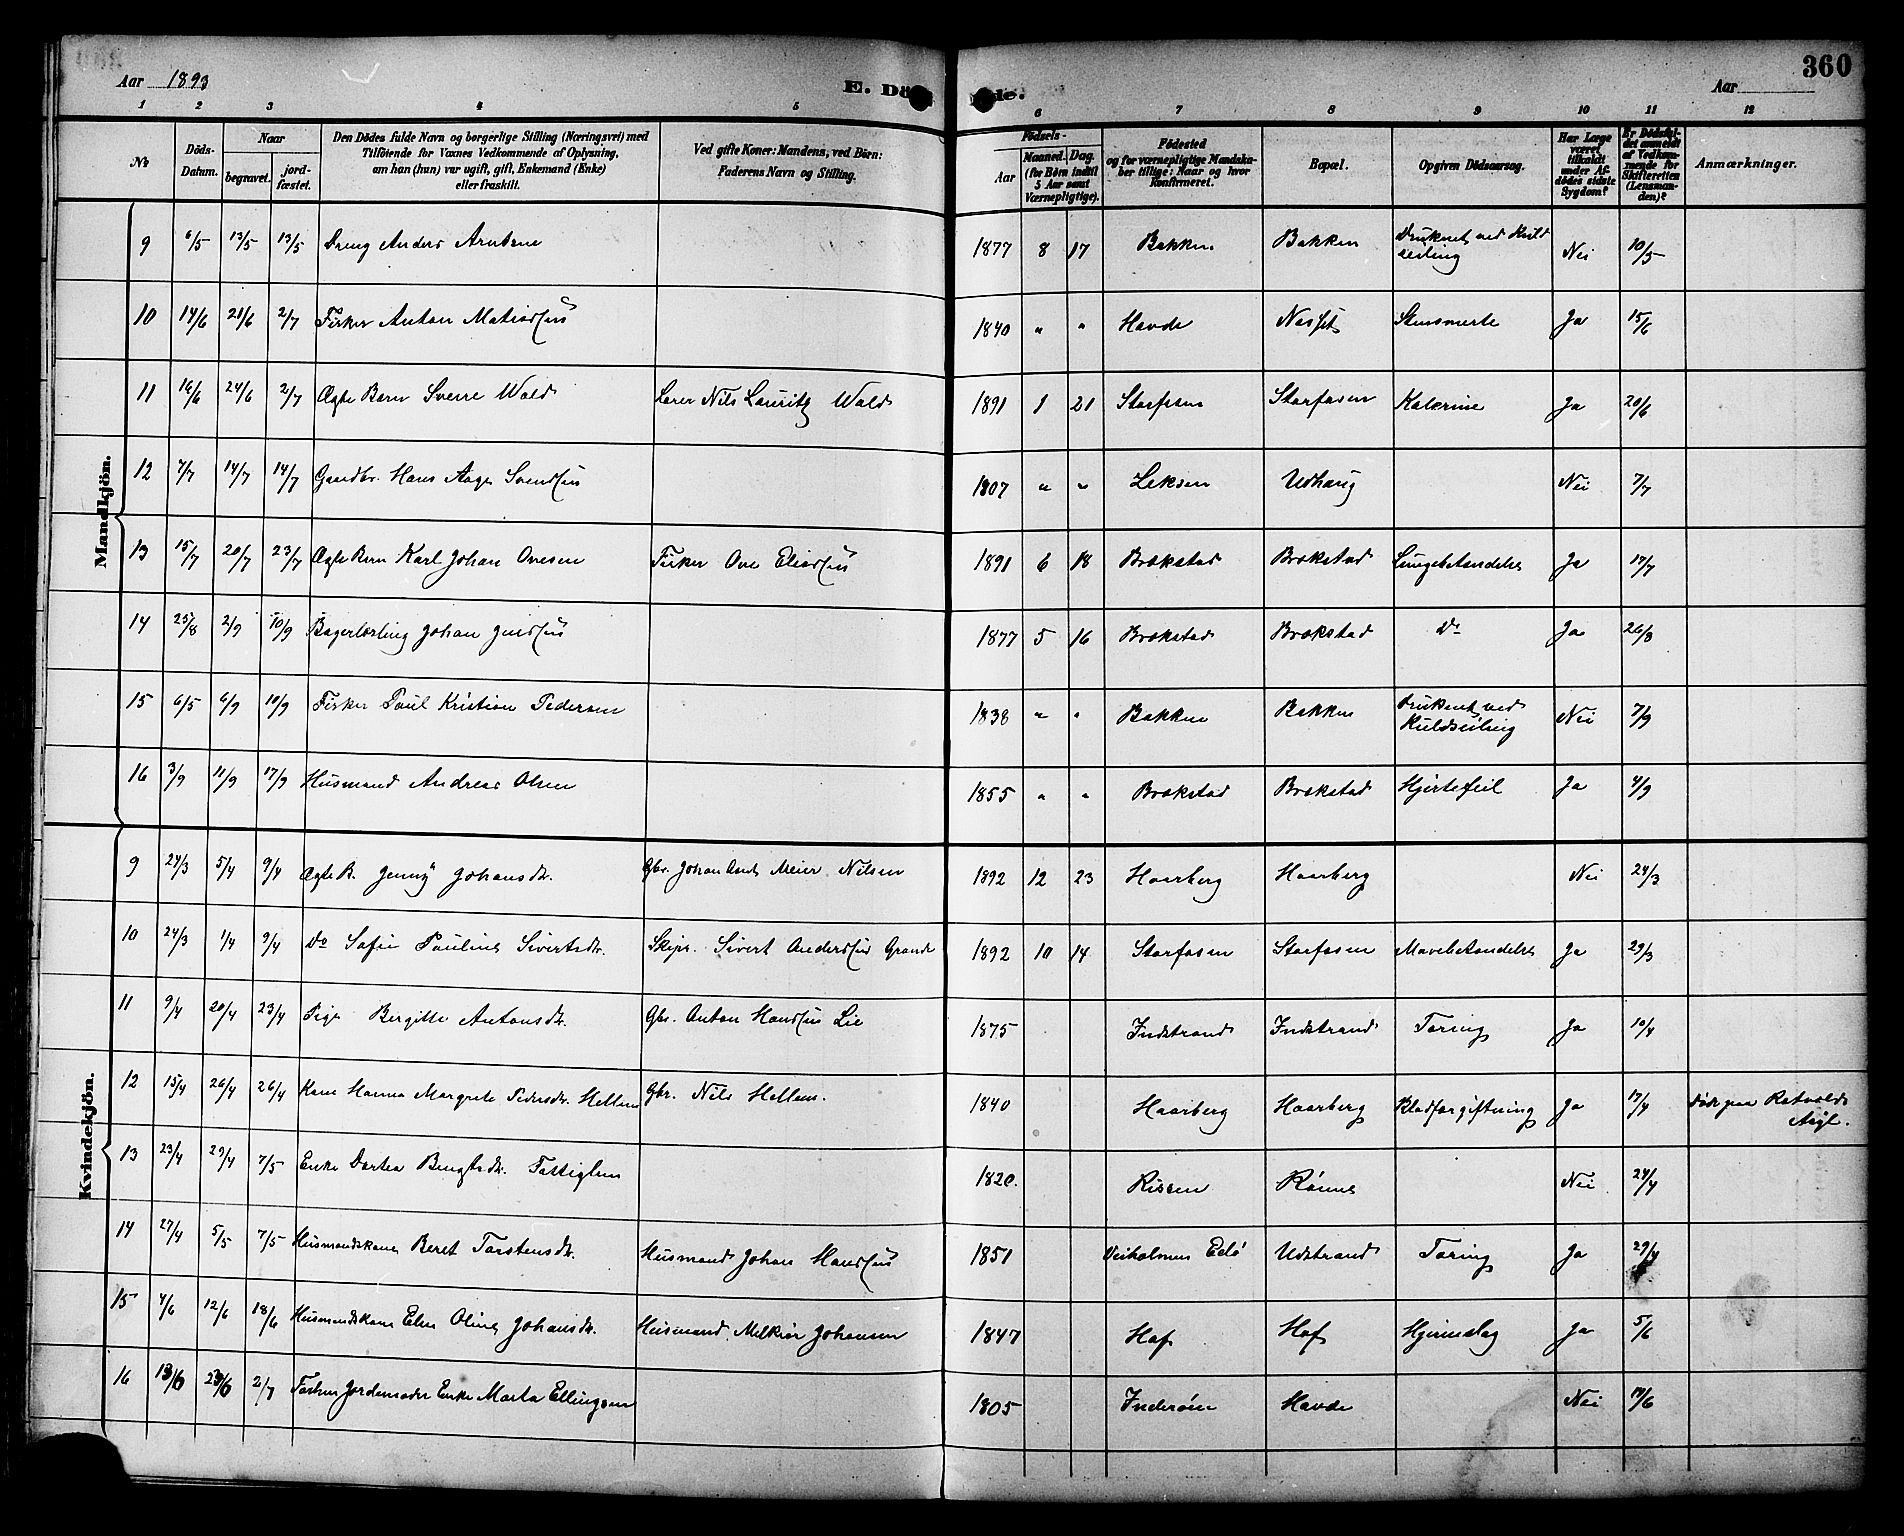 360
Aar 1893
E. Dö de.
Aar
1 2 3 4 5 6 7 8 9 10 11 12
No
Döds-Datum.
Naar
begravet.
jord-fæstet.
Den Dödes fulde Navn og borgerlige Stilling (Næringsvei) med
Tilföiende for Voxnes Vedkommende af Oplysning,
om han (hun) var ugift, gift, Enkemand (Enke)
eller fraskilt.
Ved gifte Koner: Mandens, ved Börn:
Faderens Navn og Stilling.
Födsels-
Aar
Maaned. Dag.
(for Börn indtil
5 Aar samt
Værnepligtige).
Födested
og for værnepligtige Mandska-
ber tillige: Naar og hvor
Konfirmeret.
Bopæl.
Opgiven Dödsaarsag.
Har Læge
været
tilkaldt
under Af-
dödes sidste
Sygdom?
Er Dödsfal-
det anmeldt
af Vedkom-
mende for
Skifteretten
(Lensman-
den)?
Anmærkninger.
Mandkjön.
9 6/5 13/5 13/5 Dreng Anders Arntsen 1877 8 17 Bakken Bakken Druknet ved Kuld
seiling Nei 10/5
10 14/6 21/6 2/7 Fisker Anton Matiassen 1840 " " Havde Ja 15/6
11 16/6 24/6 2/7 Ægte Barn Sverre Wold Lærer Nils Lauritz Wold 1891 1 21 Storfosen Storfosen Ja 20/6
12 7/7 14/7 14/7 Gaardbr. Hans Aage Svendsen 1807 " " Leksen Udhaug Nei 7/7
13 15/7 20/7 23/7 Ægte Barn Karl Johan Ovesen Fisker Ove Eliassen 1891 6 18 Brækstad Brækstad Lungebetændelse Ja 17/7
14 25/8 2/9 10/9 Bagerlærling Johan 1877 5 16 Brækstad Brækstad Do Ja 26/8
15 6/5 6/9 10/9 Fisker Paul Kristian Pedersen 1838 " " Bakken Bakken Druknet ved
Kuldseiling Nei 7/9
16 3/9 11/9 17/9 Husmand Andreas Olsen 1855 " " Brækstad Brækstad Hjertefeil Ja 4/9
Kvindekjön.
9 24/3 5/4 9/4 Ægte B. Jenny Johansdr. Gbr. Johan Arnt Meier Nilsen 1892 12 23 Haarberg Haarberg Nei 24/3
10 24/3 1/4 9/4 Do Sofie Pauline Sivertsdr. Skipr. Sivert Anderssen Grande 1892 10 14 Storfosen Storfosen Mavebetændelse Ja 29/3
11 9/4 20/4 23/4 Pige Bergitte Antonsdr. Gbr. Anton Hanssen Lie 1875 Indstrand Indstrand Tæring Ja 10/4
12 15/4 26/4 26/4 Kone Hanna Margrete Pedersdr. Hellem Gbr. Nils Hellem. 1840 Haarberg Haarberg Blodforgiftning Ja 17/4 Död paa Rotvold
Asyl.
13 23/4 29/4 7/5 Enke Dortea Bengtsdr. Fattiglem 1820. Rissen Rönne Nei 24/4
14 27/4 5/5 7/5 Husmandskone Beret Torstensdr. Husmand Johan Hanssen 1851 Veiholmen Edö Udstrand Tæring Ja 29/4
15 4/6 12/6 18/6 Husmandskone Elen Oline Johansdr. Husmand Melkior Johansen 1847 Hof Hof Hjerneslag Ja 5/6
16 13/6 23/6 2/7 Jordemoder Enke Marta Ellingsen 1805 Inderöen Havde Nei 17/6